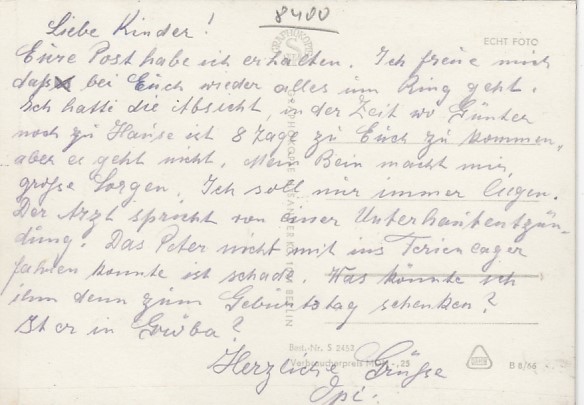 8400
Liebe Kinder!
Eure Post habe ich erhalten. Ich freue mich
daß bei Euch wieder alles im Ring geht.
Ich hatte die Absicht, in der Zeit wo Günter
noch zu Hause ist 8 Tage zu Euch zu kommen,
aber es geht nicht. Mein Bein macht mir
große Sorgen. Ich soll nur immer liegen.
Der Arzt spricht von einer Unterhautentzün-
dung. Das Peter nicht mit ins Ferienlager
fahren konnte ist schade. Was könnte ich
ihm denn zum Geburtstag schenken?
Ist er in Gröba?
Herzliche Grüße
Opi.
ECHT FOTO
BERLIN
Best.-Nr. S 2452
Verbraucherpreis MDN -,25
B 8/66